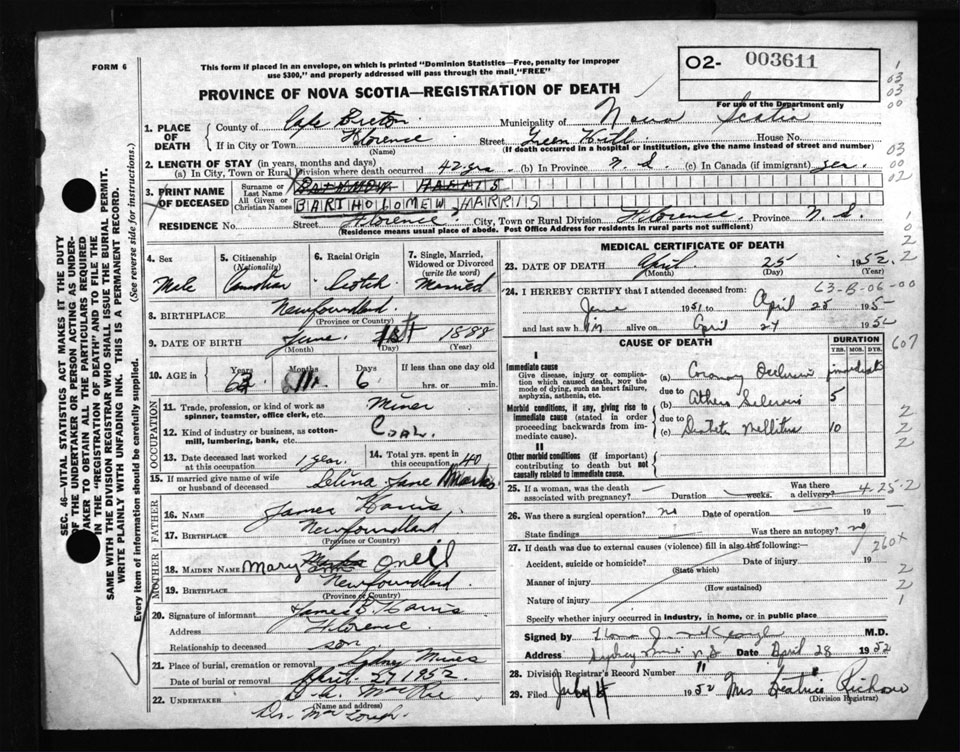 FORM 6
This form if placed in an envelope, on which is printed "Dominion Statistics—Free, penalty for improper
use $300," and properly addressed will pass through the mail "FREE"
O2- 003611
For use of the Department only
PROVINCE OF NOVA SCOTIA—REGISTRATION OF DEATH
1. PLACE OF DEATH
County of Cape Breton Municipality of Nova Scotia
If in City or Town Florence Street Green Hill House No.
(Name) (If death occurred in a hospital or institution, give the name instead of street and number)
2. LENGTH OF STAY (in years, months and days)
(a) In City, Town or Rural Division where death occurred 42 yrs (b) In Province N. S. (c) In Canada (if immigrant) yes.
3. PRINT NAME OF DECEASED
Surname or Last Name HARRIS
All Given or Christian Names BARTHOLOMEW HARRIS
RESIDENCE No. Street Florence City, Town or Rural Division Florence. Province N. S.
(Residence means usual place of abode. Post Office Address for residents in rural parts not sufficient)
4. Sex Male
5. Citizenship (Nationality) Canadian
6. Racial Origin Scotch
7. Single, Married, Widowed or Divorced (write the word) Married
8. BIRTHPLACE Newfoundland
(Province or Country)
9. DATE OF BIRTH June 1st 1888
(Month) (Day) (Year)
10. AGE in Years 63 Months 11 Days 6 If less than one day old
hrs. or min.
OCCUPATION
11. Trade, profession, or kind of work as spinner, teamster, office clerk, etc. Miner
12. Kind of industry or business, as cotton-mill, lumbering, bank, etc. Coal
13. Date deceased last worked at this occupation 1 year
14. Total yrs. spent in this occupation 40
15. If married give name of wife or husband of deceased Selina Jane Marks
FATHER
16. NAME James Harris
17. BIRTHPLACE Newfoundland
(Province or Country)
MOTHER
18. MAIDEN NAME Mary Oneil
19. BIRTHPLACE Newfoundland
(Province or Country)
20. Signature of informant James B. Harris
Address Florence
Relationship to deceased son
21. Place of burial, cremation or removal Sydney Mines
Date of burial or removal April 27 1952.
22. UNDERTAKER D. A. MacRae
(Name and address)
MEDICAL CERTIFICATE OF DEATH
23. DATE OF DEATH April 25 1952.
(Month) (Day) (Year)
24. I HEREBY CERTIFY that I attended deceased from: 63-B-06-00
June 1951 to April 25 195
and last saw him alive on April 24 1952
CAUSE OF DEATH
DURATION
YRS. MOS. DYS.
I
Immediate cause
Give disease, injury or complication which caused death, not the mode of dying, such as heart failure, asphyxia, asthenia, etc.
(a) Coronary Occlusion immediate
due to
Morbid conditions, if any, giving rise to immediate cause (stated in order proceeding backwards from immediate cause).
(b) Athero Sclerosis 5
due to
(c) Diabetes Mellitus 10
II
Other morbid conditions (if important) contributing to death but not causally related to immediate cause.
25. If a woman, was the death associated with pregnancy? — Duration — weeks. Was there a delivery? 4-25-2
26. Was there a surgical operation? no Date of operation — 19
State findings Was there an autopsy? no
27. If death was due to external causes (violence) fill in also the following:—
Accident, suicide or homicide? Date of injury 19
(State which)
Manner of injury
(How sustained)
Nature of injury
Specify whether injury occurred in industry, in home, or in public place
Signed by M.D.
Address Sydney Mines NS Date April 28 1952
28. Division Registrar's Record Number 11
29. Filed July 4 1952 Mrs Beatrice
(Division Registrar)
607
260X
SEC. 46—VITAL STATISTICS ACT MAKES IT THE DUTY
OF THE UNDERTAKER OR PERSON ACTING AS UNDER-
TAKER TO OBTAIN ALL THE PARTICULARS REQUIRED
IN THE "REGISTRATION OF DEATH" AND TO FILE THE
SAME WITH THE DIVISION REGISTRAR WHO SHALL ISSUE THE BURIAL PERMIT.
WRITE PLAINLY WITH UNFADING INK. THIS IS A PERMANENT RECORD.
Every item of information should be carefully supplied. (See reverse side for instructions.)